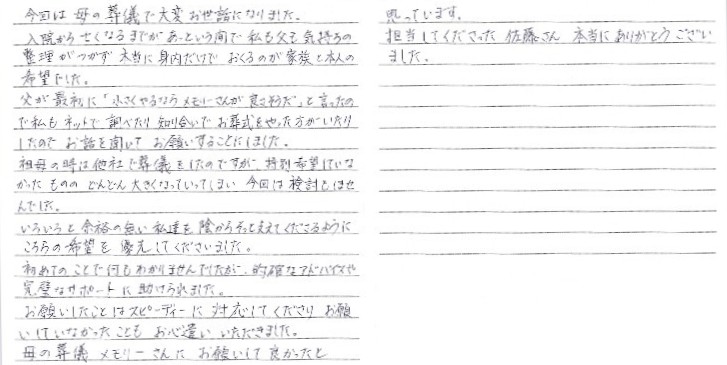 今回は 母の葬儀で大変お世話になりました。
入院から亡くなるまでがあっという間で 私も父も 気持ちの
整理がつかず 本当に身内だけで おくるのが家族と本人の
希望でした。
父が最初に「小さくやるなら メモリーさんが良さそうだ」と言ったの
で私も ネットで 調べたり 知り合いで お葬式をやった方がいたり
したので お話を聞いて お願いすることにしました。
祖母の時は他社で葬儀をしたのですが 特別希望していな
かったものの どんどん大きくなっていってしまい 今回は 検討もしませ
んでした。
いろいろと余裕の無い私達を 陰からそっと支えてくださるように
こちらの希望を 優先してくださいました。
初めてのことで何もわかりませんでしたが、的確なアドバイスや
完璧なサポートに助けられました。
お願いしたことはスピーディーに 対応してくださり お願
いしていなかったことも お心遣いいただきました。
母の葬儀 メモリーさんに お願いして良かったと
思っています。
担当してくださった 佐藤さん 本当にありがとうござい
ました。